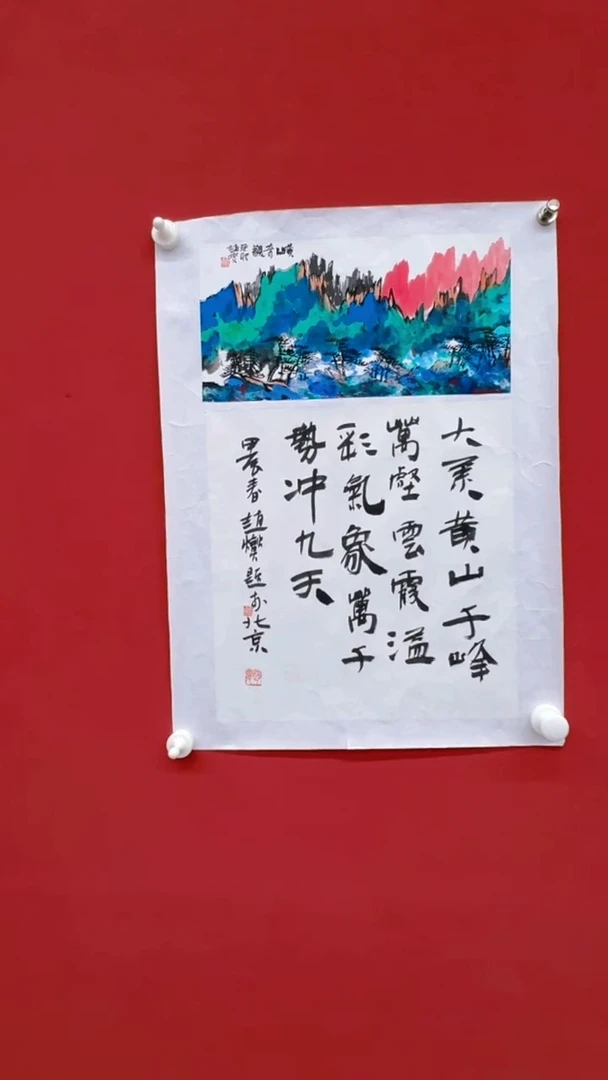 黄山奇觀
大美黄山千峰
萬壑雲霞溢
彩氣象萬千
勢冲九天
甲辰春趙題於北京